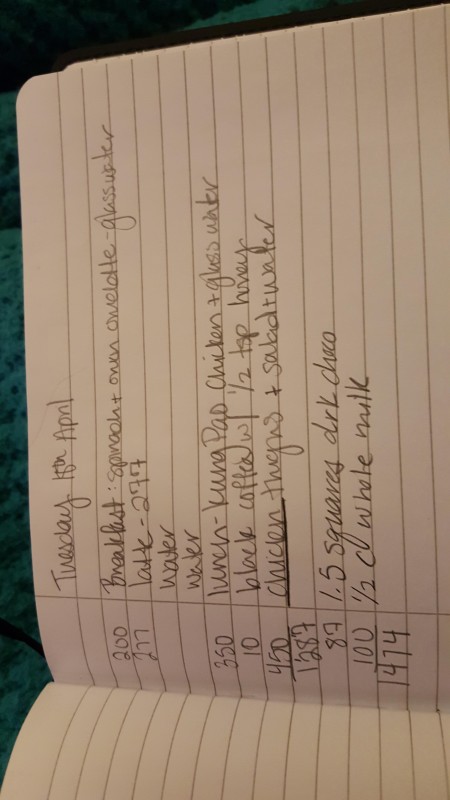 Tuesday 11th April
200 Breakfast: spinach + onion omelatte - glass water
277 latte - 277
water
water
350 lunch - Kung Pao Chicken + glass water
10 black coffee w/ 1/2 tsp honey
450 chicken thighs + salad + water
1287
87 1.5 squares drk choco
100 1/2 c whole milk
1474